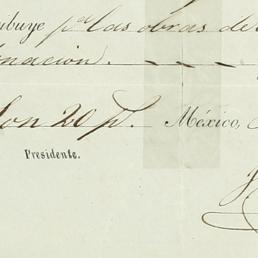 ibuye pª las obras de
nacion.
Son 20 p. México,
Presidente.